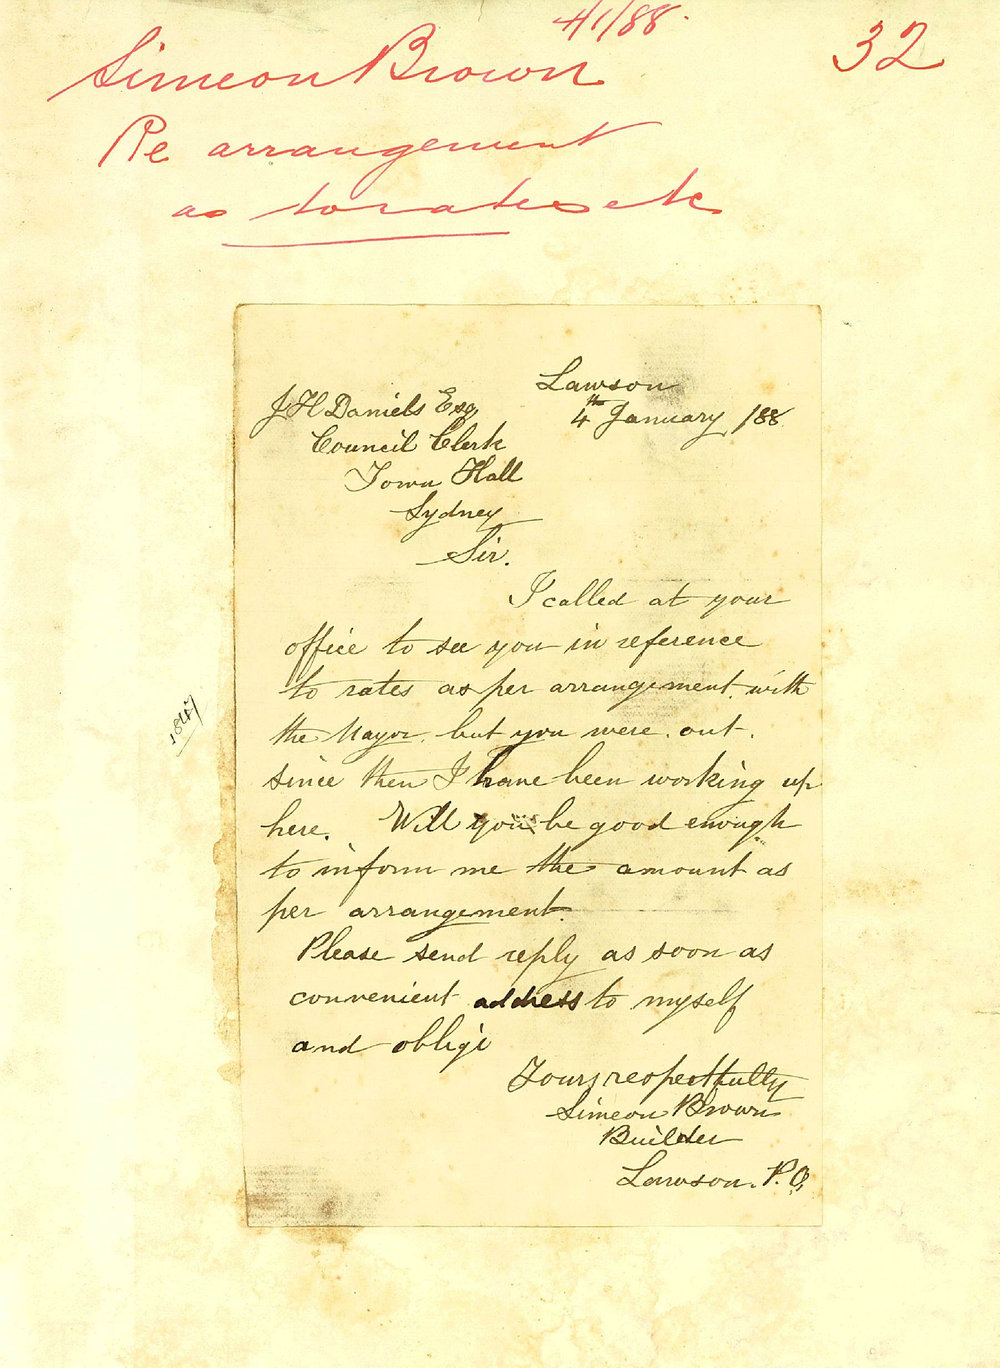 4/1/88.
32
Simeon Brown
Re arrangement
as to rates etc
Lawson
4th January /88
J H Daniels Esq
Council Clerk
Town Hall
Sydney
Sir.
I called at your
office to see you in reference
to rates as per arrangement with
the Mayor. but you were out.
since then I have been working up
here. Will you be good enough
to inform me the amount as
per arrangement.
Please send reply as soon as
convenient address to myself
and oblige
Yours respectfully
Simeon Brown
Builder
Lawson. P.O.